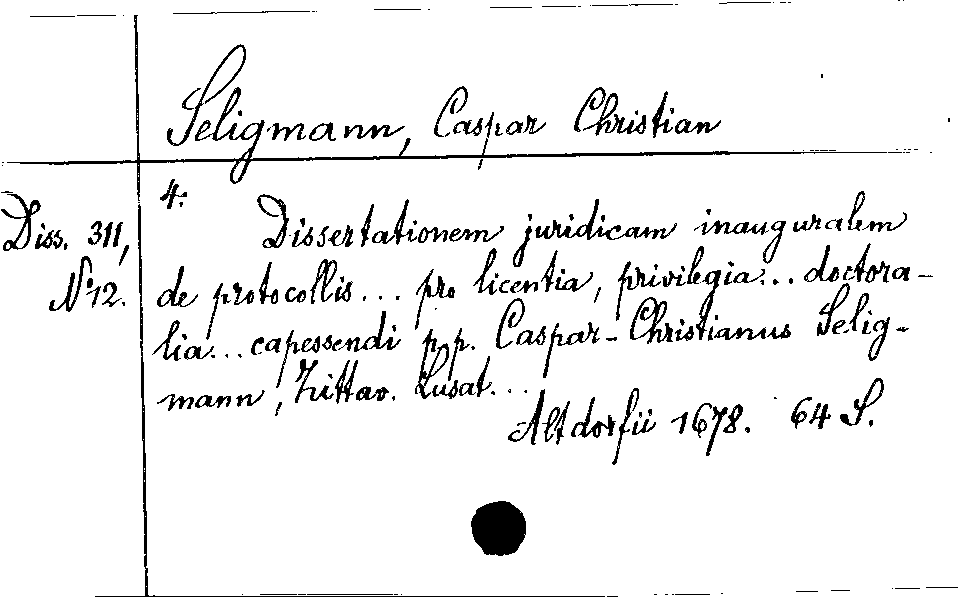 Seligmann, Caspar Christian
4.
Diss. 311,
No 12.
Dissertationem juridicam inauguralem
de protocollis... pro licentia, privilegia... doctora-
lia... capessendi p. p. Caspar-Christianus Selig-
mann, Zittav. Lusat...
Altdorfii 1678. 64 S.